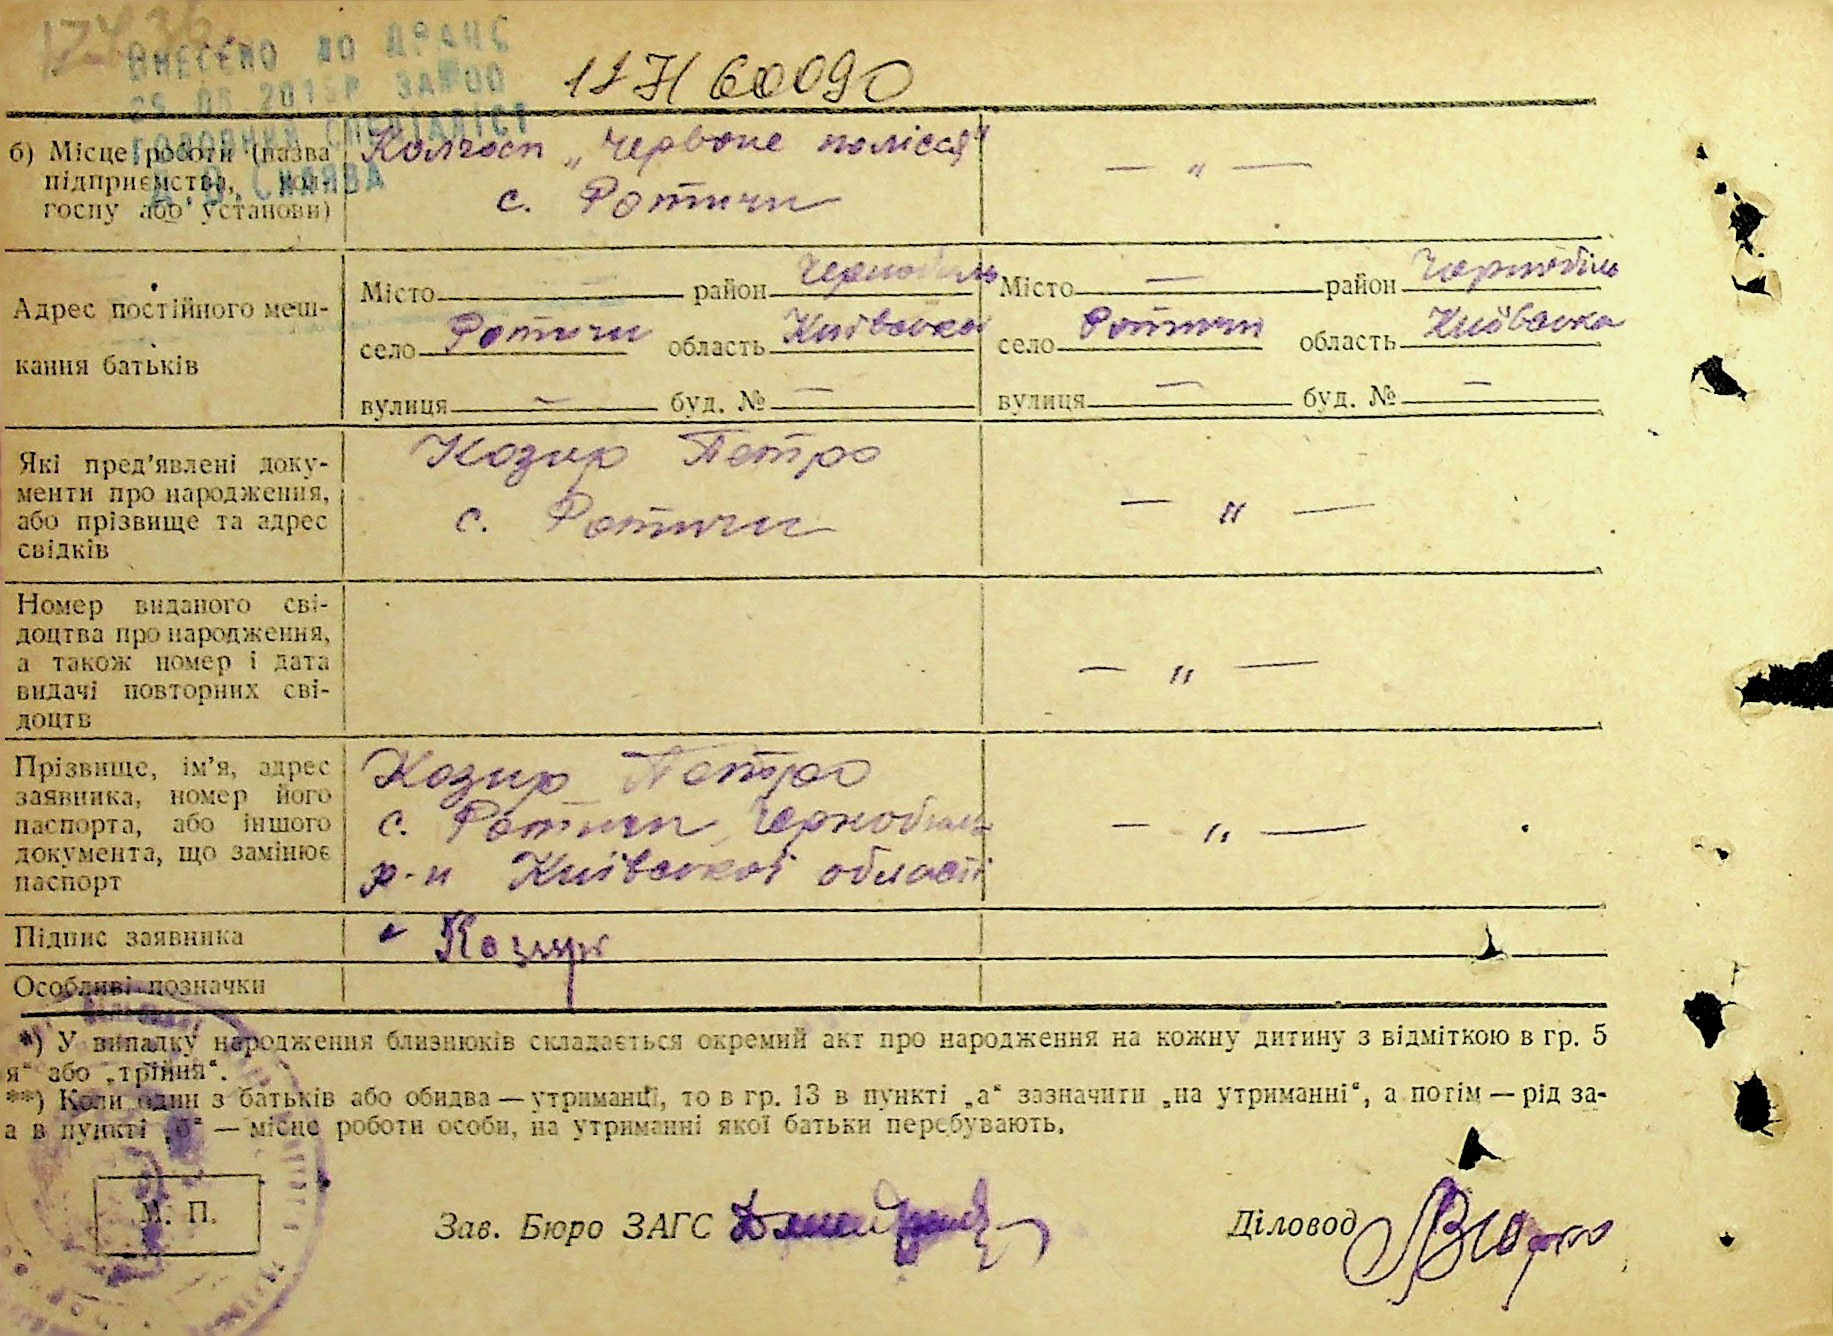 ВНЕСЕНО ДО ДРАЦС
ГОЛОВНИЙ СПЕЦІАЛІСТ
1 І Н 60090
б) Місце роботи (назва підприємства, кол-госпу або установи)
Колгосп „Червоне полісся"
с. Ротичи
— „ —
Адрес постійного меш-
кання батьків
Місто — район Чернобиль
село Ротичи область Київська
вулиця — буд. № —
Місто — район Чернобиль
село Ротичи область Київська
вулиця — буд. № —
Які пред'явлені доку-
менти про народження,
або прізвище та адрес
свідків
Козир Петро
с. Ротичи
— „ —
Номер виданого сві-
доцтва про народження,
а також номер і дата
видачі повторних сві-
доцтв
— „ —
Прізвище, ім'я, адрес
заявника, номер його
паспорта, або іншого
документа, що замінює
паспорт
Козир Петро
с. Ротичи Чернобиль
р-н Київської області
— „ —
Підпис заявника
Козир
Особливі позначки
*) У випадку народження близнюків складається окремий акт про народження на кожну дитину з відміткою в гр. 5
я" або „трійня".
**) Коли один з батьків або обидва — утриманці, то в гр. 13 в пункті „а" зазначити „на утриманні", а потім — рід за-
а в пункті „б" — місце роботи особи, на утриманні якої батьки перебувають.
М. П.
Зав. Бюро ЗАГС
Діловод